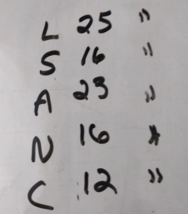 L 25 "
S 16 "
A 23 "
N 16 *
C 12 "